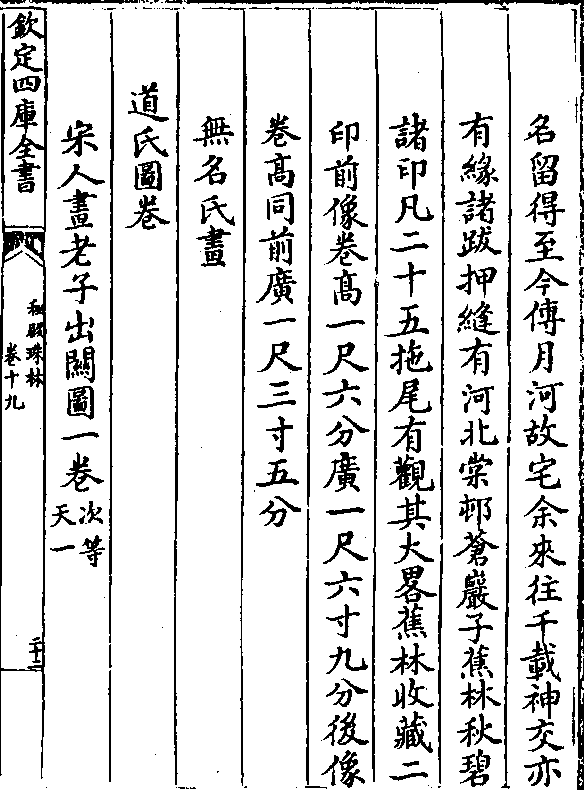 名留得至今傳月河故宅余來往千載神交亦
有緣諸跋押縫有河北棠邨蒼巖子蕉林秋碧
諸印凡二十五拖尾有觀其大畧蕉林收藏二
印前像卷髙一尺六分廣一尺六寸九分後像
卷髙同前廣一尺三寸五分
無名氏畫
道氏圖卷
宋人畫老子出關圖一卷次等天一
欽定四庫全書
秘殿珠林
卷十九
二十二